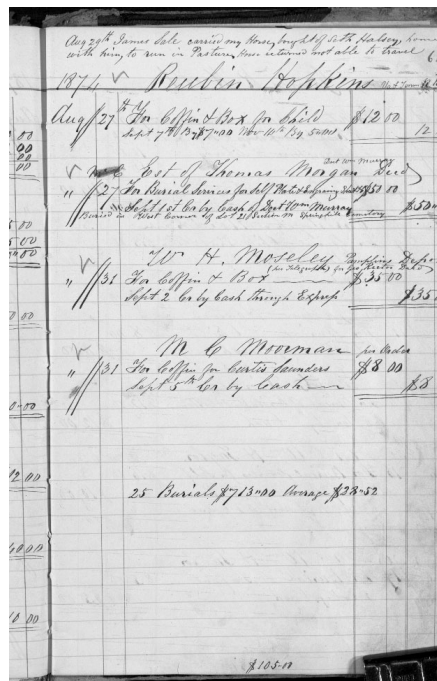 Aug 29th James Sale carried my Horse, bought of Seth Halsey, home
with him, to run in Pasture, Horse returned not able to travel
1874 Reubin Hopkins
Aug 27th For Coffin & Box for Child $12 00
Sept 7th By $7"00 Nov 10th By 5"00 12
Est of Thomas Morgan Decd
" 27 For Burial Services for Self $50 00
Sept 1st Cr by Cash of Wm Murray $50"
Buried in West Corner Lot 21 Section Springhill Cemetery
W. H. Moseley Pamplins Depo
" 31 For Coffin & Box $35 00
Sept 2 Cr by Cash through Express $35
M. C. Moorman per Order
" 31 For Coffin for Curtis Saunders $8 00
Sept 5th Cr by Cash $8
25 Burials $713"00 Average $28"52
$105"00